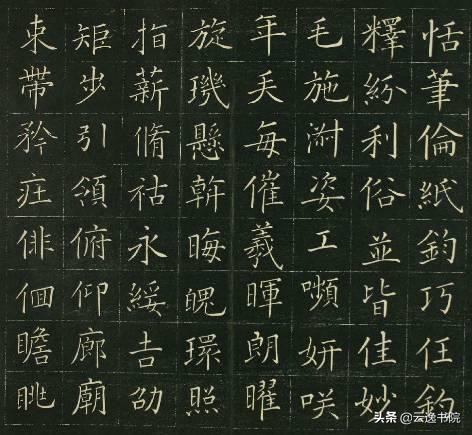 恬筆倫紙鈞巧任釣
釋紛利俗並皆佳妙
毛施淑姿工嚬妍咲
年矢每催羲暉朗曜
旋璣懸斡晦魄環照
指薪脩祜永綏吉劭
矩步引領俯仰廊廟
束帶矜莊俳佪瞻眺
头条 @云逸书院